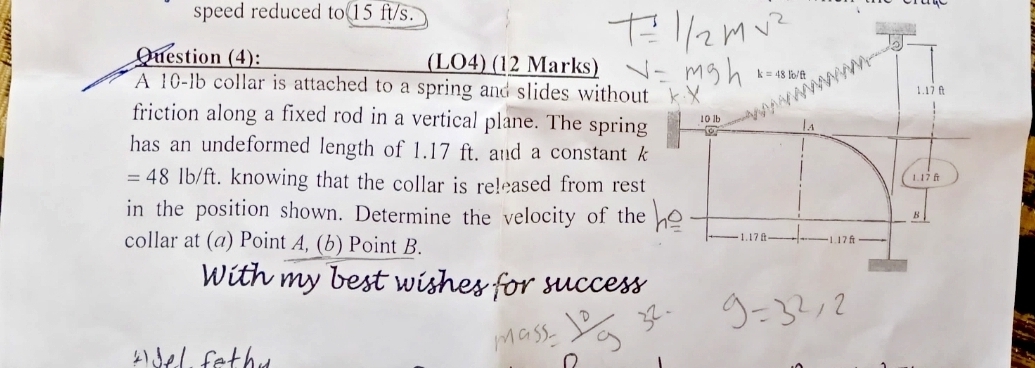 speed reduced to 15 ft/s.
T = 1/2 m v²
Question (4): (LO4) (12 Marks)
V = mgh
k.x
A 10-lb collar is attached to a spring and slides without
friction along a fixed rod in a vertical plane. The spring
has an undeformed length of 1.17 ft. and a constant k
= 48 lb/ft. knowing that the collar is released from rest
in the position shown. Determine the velocity of the
collar at (a) Point A, (b) Point B.
k = 48 lb/ft
1.17 ft
10 lb
A
1.17 ft
B
1.17 ft
1.17 ft
With my best wishes for success
mass = 10/g
g = 32,2